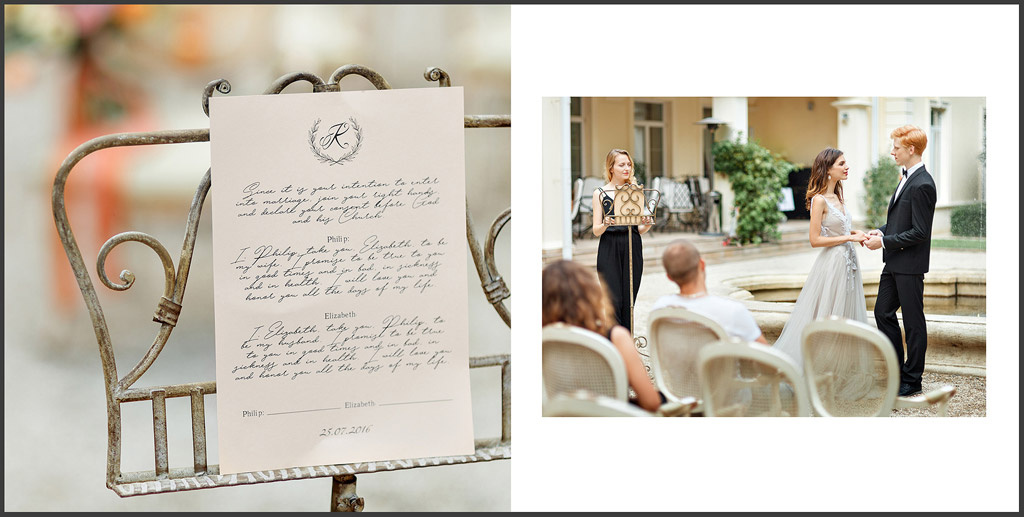 K
Since it is your intention to enter
into marriage, join your right hands,
and declare your consent before God
and his Church.
Philip:
I, Philip, take you, Elizabeth, to be
my wife. I promise to be true to you
in good times and in bad, in sickness
and in health. I will love you and
honor you all the days of my life.
Elizabeth
I, Elizabeth, take you, Philip, to
be my husband. I promise to be true
to you in good times and in bad, in
sickness and in health. I will love you
and honor you all the days of my life.
Philip: Elizabeth:
25.07.2016